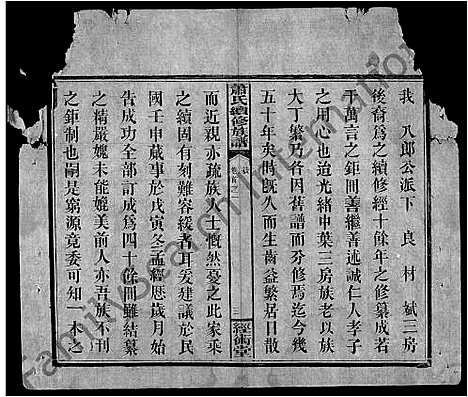 我 八郎公派下良材斌三房
後裔爲之續修經十餘年之修纂成若
干萬言之鉅間善繼善述誠仁人孝子
之用心也迨光緒中葉三房族老以族
大丁繁乃各因舊譜而分修焉迄今幾
五十年矣時旣久而生齒益繁居日散
蕭氏續修族譜
卷首之
三
經術堂
而近親亦疏族人士慨然憂之此家乘
之續固有刻難容緩者耳爰建議於民
國壬申蕆事於戊寅冬孟經歷歲月始
告成功全部訂成爲四十餘間雖結纂
之精嚴媿未能媲美前人亦吾族不刊
之鉅制也嗣是窮源竟委可知一本之
FamilySearch International